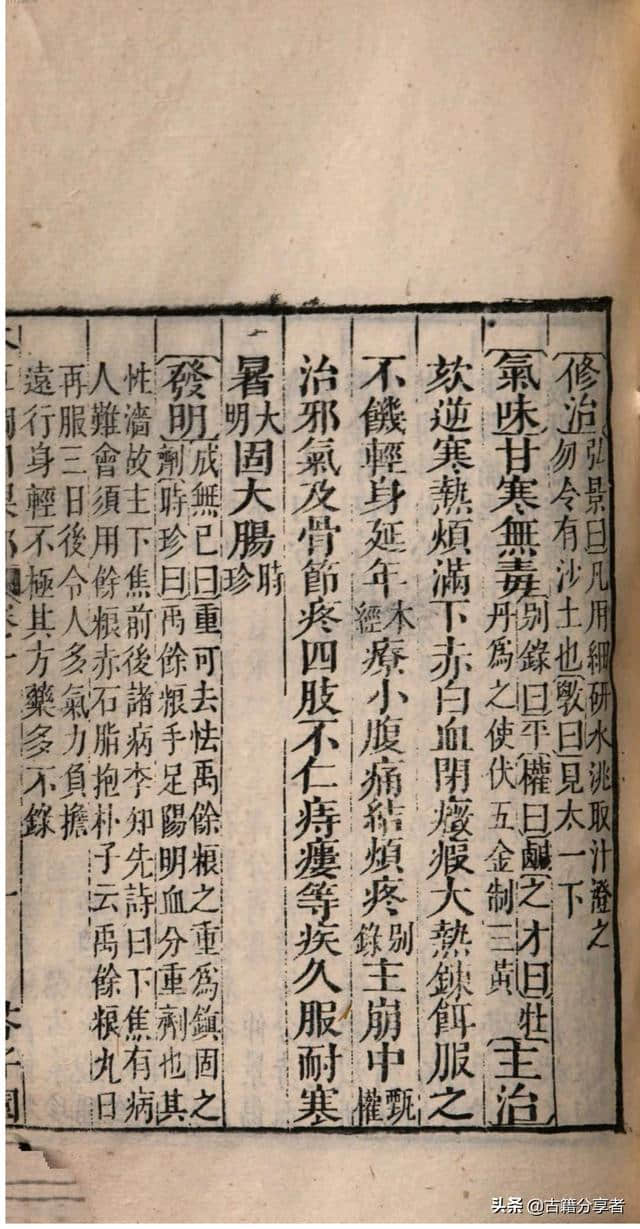 修治弘景曰凡用細研水洮取汁澄之
勿令有沙土也斆曰見太一下
氣味甘寒無毒別錄曰平權曰鹹之才曰牡
丹爲之使伏五金制三黃主治
欬逆寒熱煩滿下赤白血閉癥瘕大熱鍊餌服之
不饑輕身延年本經療小腹痛結煩疼別錄主崩中甄權
治邪氣及骨節疼四肢不仁痔瘻等疾久服耐寒
暑大明固大腸時珍
發明成無已曰重可去怯禹餘粮之重爲鎮固之
劑時珍曰禹餘粮手足陽明血分重劑也其
性濇故主下焦前後諸病李知先詩曰下焦有病
人難會須用餘粮赤石脂抱朴子云禹餘粮丸日
再服三日後令人多氣力負擔
遠行身輕不極其方藥多不錄
芥子園
头条 @古籍分享者